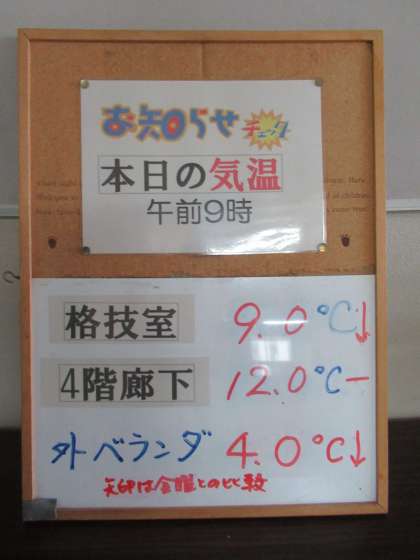 お知らせ チェック
本日の気温
午前9時
格技室 9.0℃↓
4階廊下 12.0℃−
外ベランダ 4.0℃↓
矢印は金曜との比較